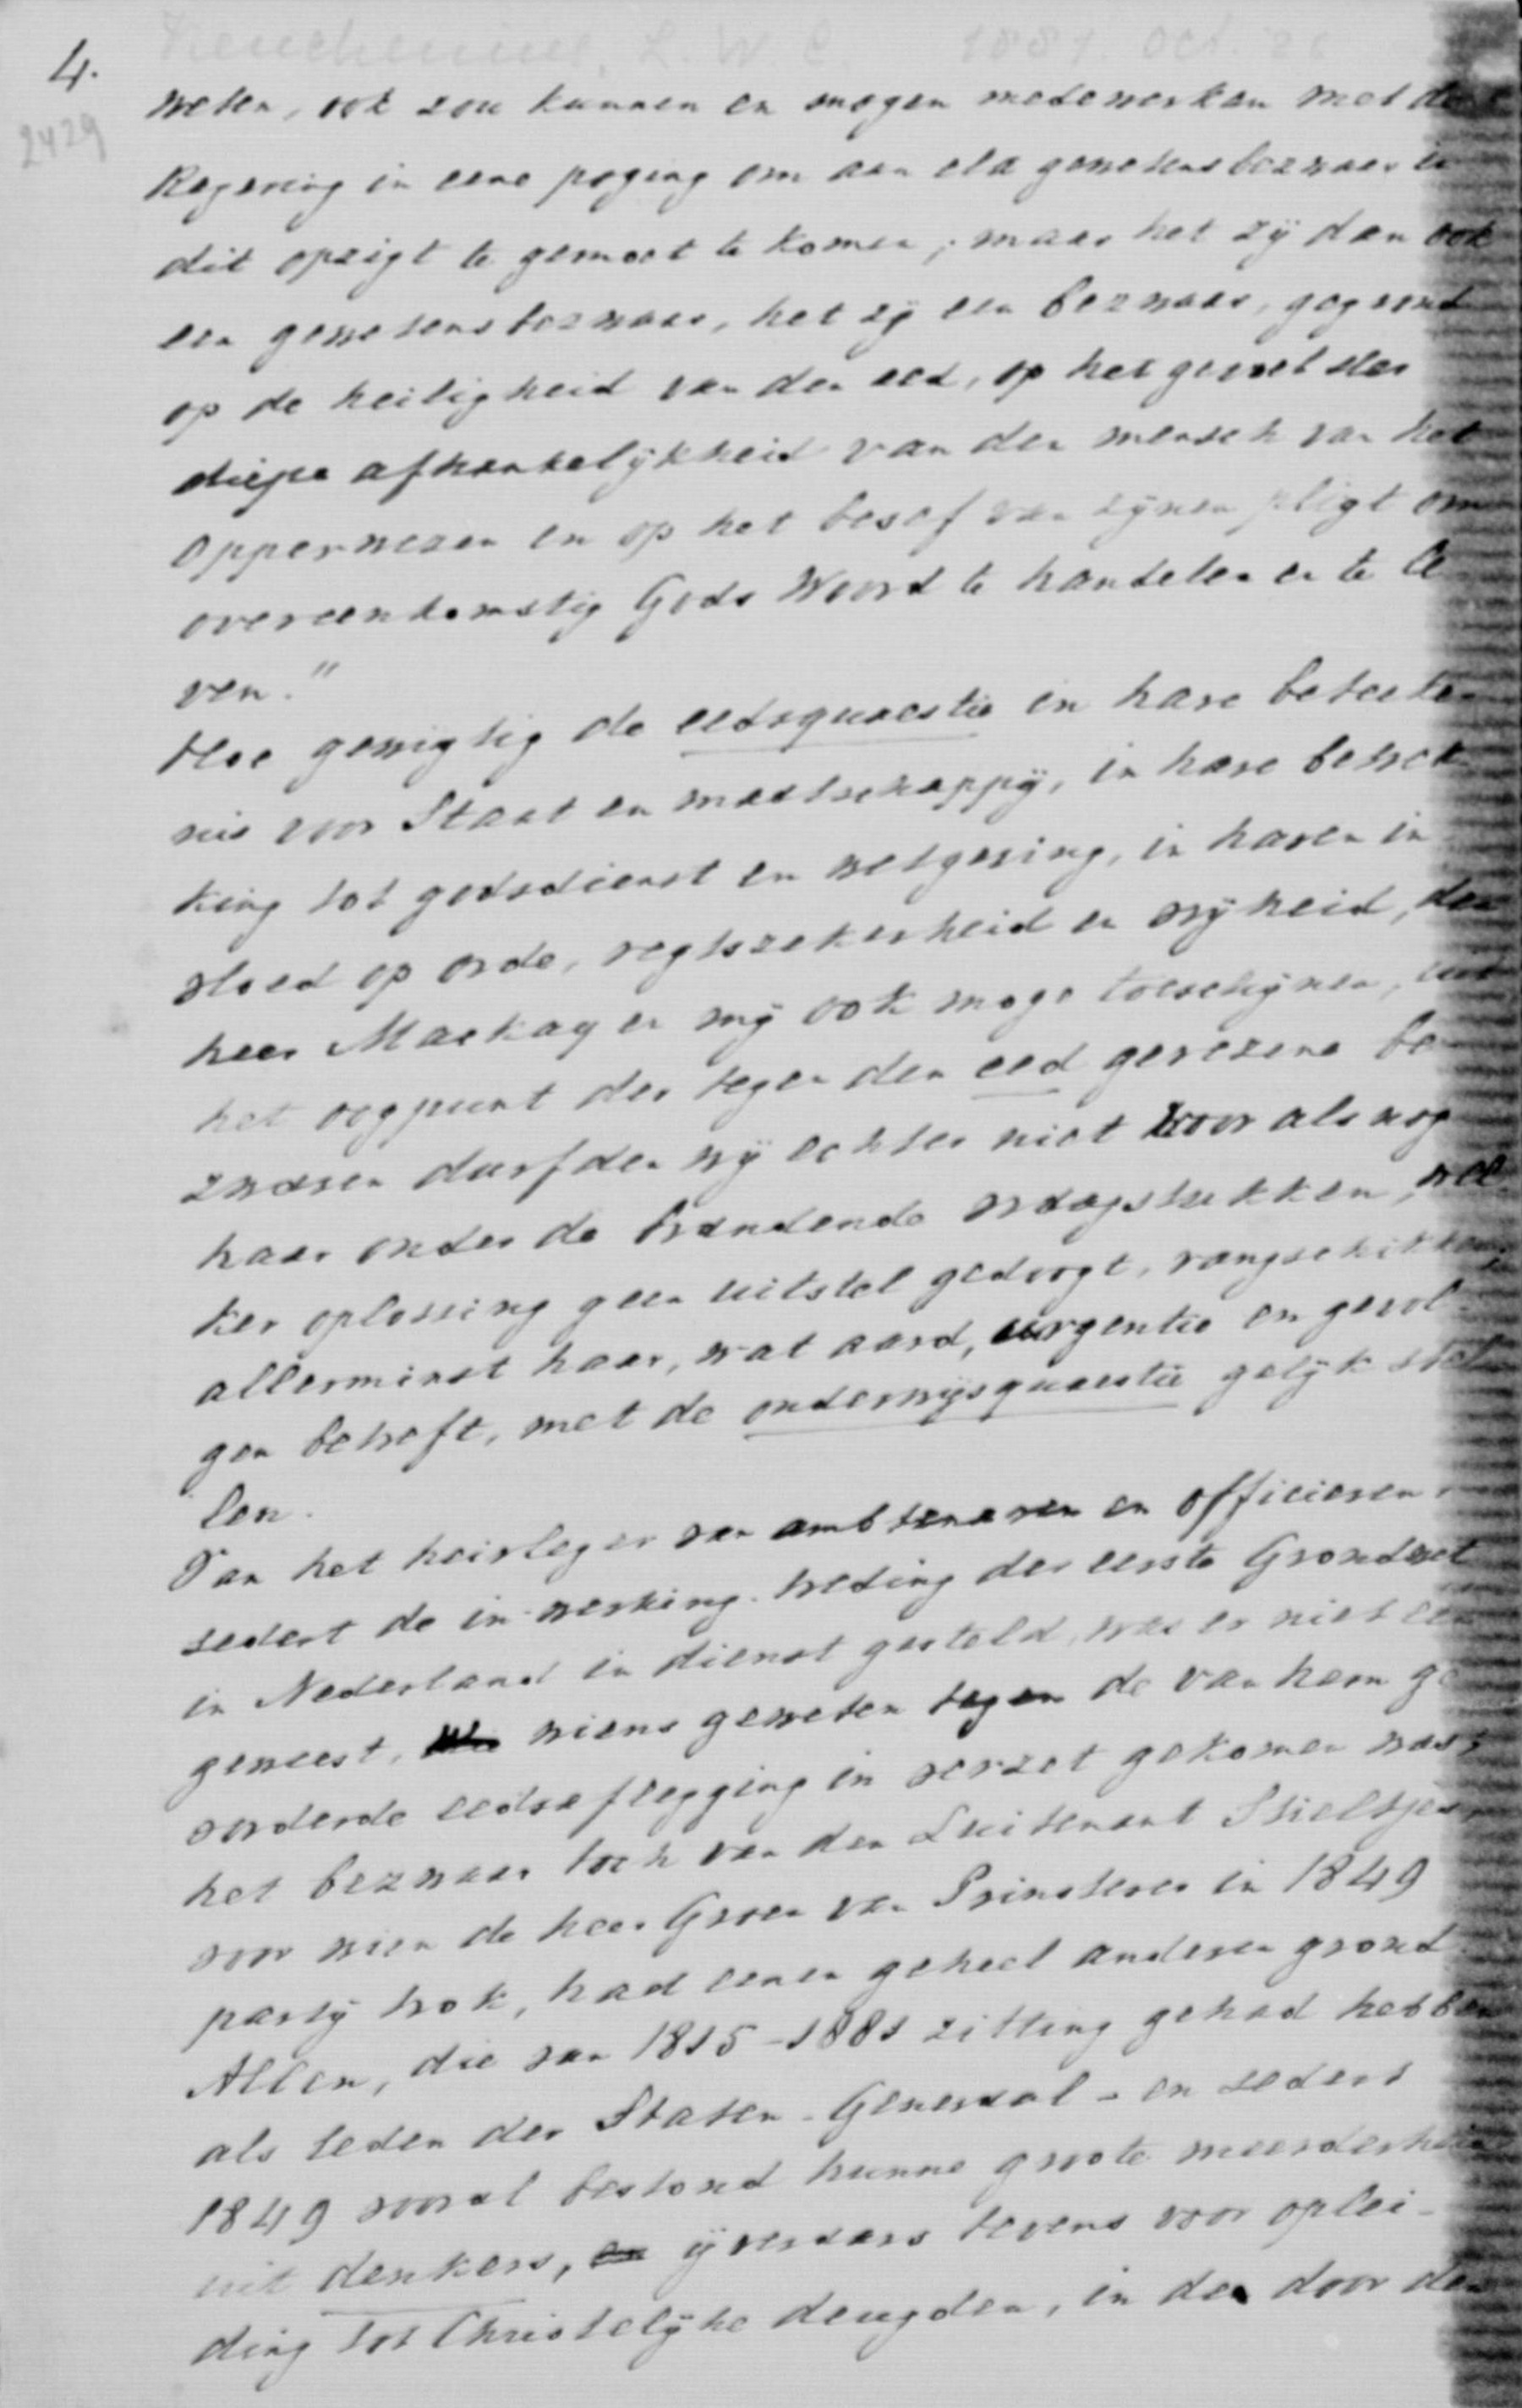 Keuchenius, L. W. C. 1881 Oct. 26
4.
2429
weten, ook zou kunnen en mogen medewerken met de
Regering in eene poging om aan elk gewetensbezwaar in
dit opzigt te gemoet te komen; maar het zij dan ook
een gewetensbezwaar, het zij een bezwaar, gegrond
op de heiligheid van den eed, op het gevoel der
diepe afhankelijkheid van den mensch van het
Opperwezen en op het besef van zijnen pligt om
overeenkomstig Gods Woord te handelen en te le
ven."
Hoe gewigtig de eedsquaestie in hare beteeke
nis voor Staat en maatschappij, in hare betrek
king tot godsdienst en wetgeving, in haren in
vloed op orde, regtszekerheid en vrijheid, den
heer Mackay en mij ook moge toeschijnen, uit
het oogpunt der tegen den eed gerezene be
zwaren durfden wij echter niet voor alsnog
haar onder de brandende vraagstukken, wel
ker oplossing geen uitstel gedoogt, rangschikken,
allerminst haar, wat aard, urgentie en gevol
gen betreft, met de onderwijsquaestie gelijk stel
len.
Van het heirleger van ambtenaren en officieren
sedert de in-werking-treding der eerste Grondwet
in Nederland in dienst gesteld, was er niet een
geweest, wiens geweten tegen de van hem ge
vorderde eedsaflegging in verzet gekomen was;
het bezwaar toch van den Luitenant Stieltjes,
voor wien de heer Groen van Prinsterer in 1849
partij trok, had eenen geheel anderen grond.
Allen, die van 1815-1881 zitting gehad hebben
als leden der Staten-Generaal - en sedert
1849 vooral bestond hunne groote meerderheid
uit denkers, ijveraars tevens voor oplei-
ding tot Christelijke deugden, in den door den